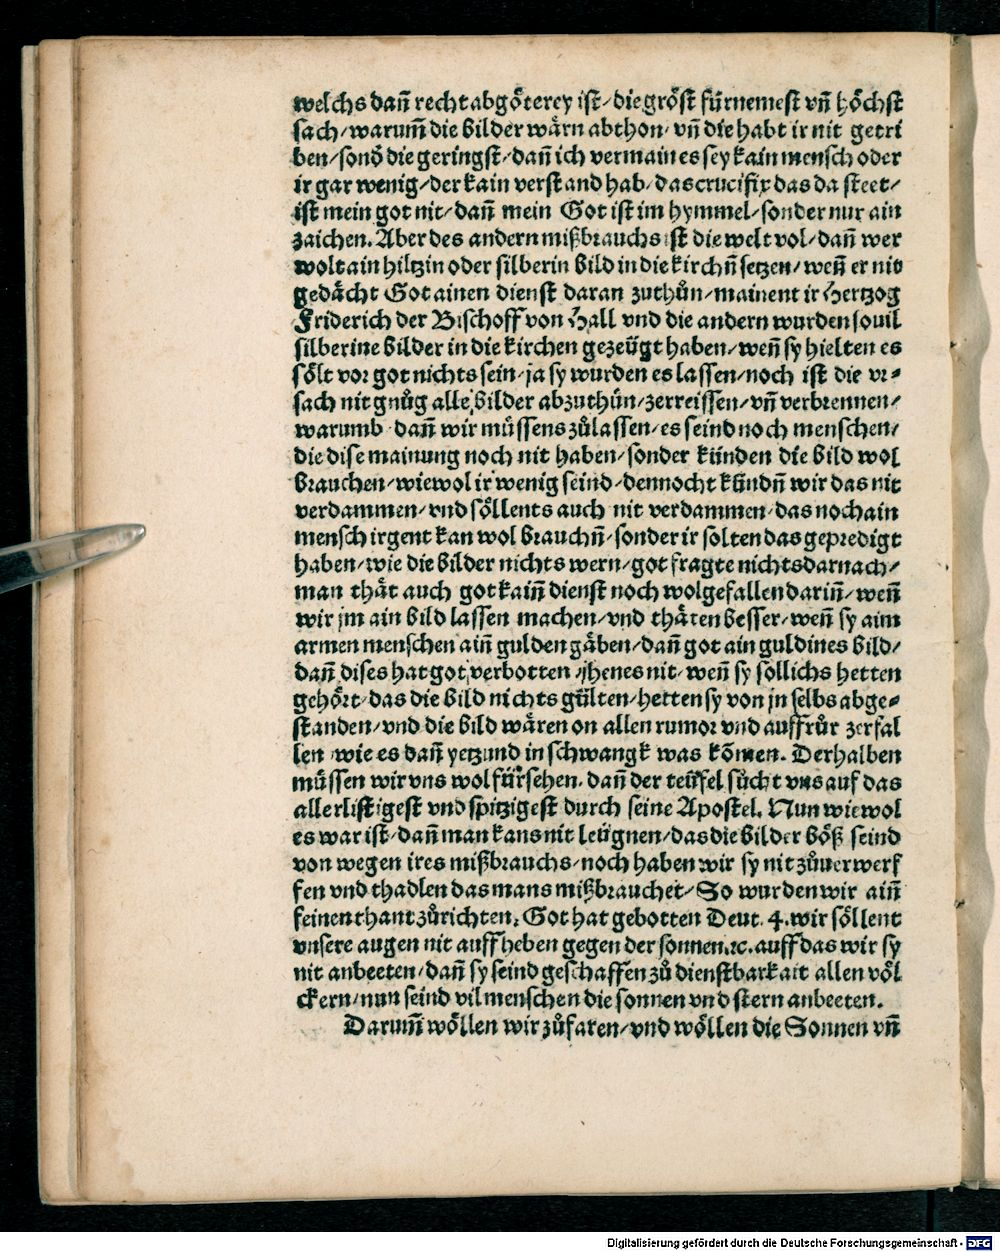 welchs dañ recht abgötterey ist/ die gröst fürnemest vñ höchst
sach/ warum̃ die bilder wärn abthon/ vñ die habt ir nit getri
ben/ sond̕ die geringst/ dañ ich vermain es sey kain mensch oder
ir gar wenig/ der kain verstand hab/ das crucifix das da steet/
ist mein got nit/ dañ mein Got ist im hymmel/ sonder nur ain
zaichen. Aber des andern mißbrauchs ist die welt vol/ dañ wer
wolt ain hiltzin oder silberin bild in die kirchñ setzen/ weñ er nit
gedächt Got ainen dienst daran zuthůn/ mainent ir Hertzog
Friderich der Bischoff von Hall vnd die andern wurden souil
silberine bilder in die kirchen gezeügt haben/ weñ sy hielten es
sölt vor got nichts sein/ ja sy wurden es lassen/ noch ist die vr⸗
sach nit gnůg alle bilder abzuthün/ zerreissen/ vñ verbrennen/
warumb dañ wir müssens zůlassen/ es seind noch menschen/
die dise mainung noch nit haben/ sonder künden die bild wol
brauchen/ wiewol ir wenig seind/ dennocht kündñ wir das nit
verdammen/ vnd söllents auch nit verdammen/ das noch ain
mensch irgent kan wol brauchñ/ sonder ir solten das gepredigt
haben/ wie die bilder nichts wern/ got fragte nichts darnach/
man thät auch got kaiñ dienst noch wolgefallen dariñ/ weñ
wir jm ain bild lassen machen/ vnd thäten besser/ weñ sy aim
armen menschen aiñ gulden gäben/ dañ got ain guldines bild/
dañ dises hat got verbotten/ jhenes nit/ weñ sy sollichs hetten
gehört/ das die bild nichts gülten/ hetten sy von jn selbs abge⸗
standen/ vnd die bild wären on allen rumor vnd auffrůr zerfal
len/ wie es dañ yetzund in schwangk was kömen. Derhalben
müssen wir vns wol fürsehen/ dañ der teüfel sůcht vns auf das
allerlistigest vnd spitzigest durch seine Apostel. Nun wiewol
es war ist/ dañ man kans nit leügnen/ das die bilder böß seind
von wegen ires mißbrauchs/ noch haben wir sy nit zůuerwerf
fen vnd thadlen das mans mißbrauchet/ So wurden wir aiñ
feinen thant zůrichten. Got hat gebotten Deut. 4. wir söllent
vnsere augen nit auffheben gegen der sonnen. ꝛc. auff das wir sy
nit anbeeten/ dañ sy seind geschaffen zů dienstbarkait allen völ
ckern/ nun seind vil menschen die sonnen vnd stern anbeeten.
Darum̃ wöllen wir zůfaren/ vnd wöllen die Sonnen vñ
Digitalisierung gefördert durch die Deutsche Forschungsgemeinschaft - DFG